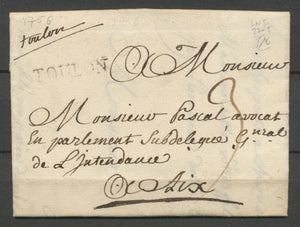 1756
toulon
TOULON
A Monsieur
Monsieur Pascal avocat
En parlement Subdelegué G.nral
de L'Intendance
A Aix
3